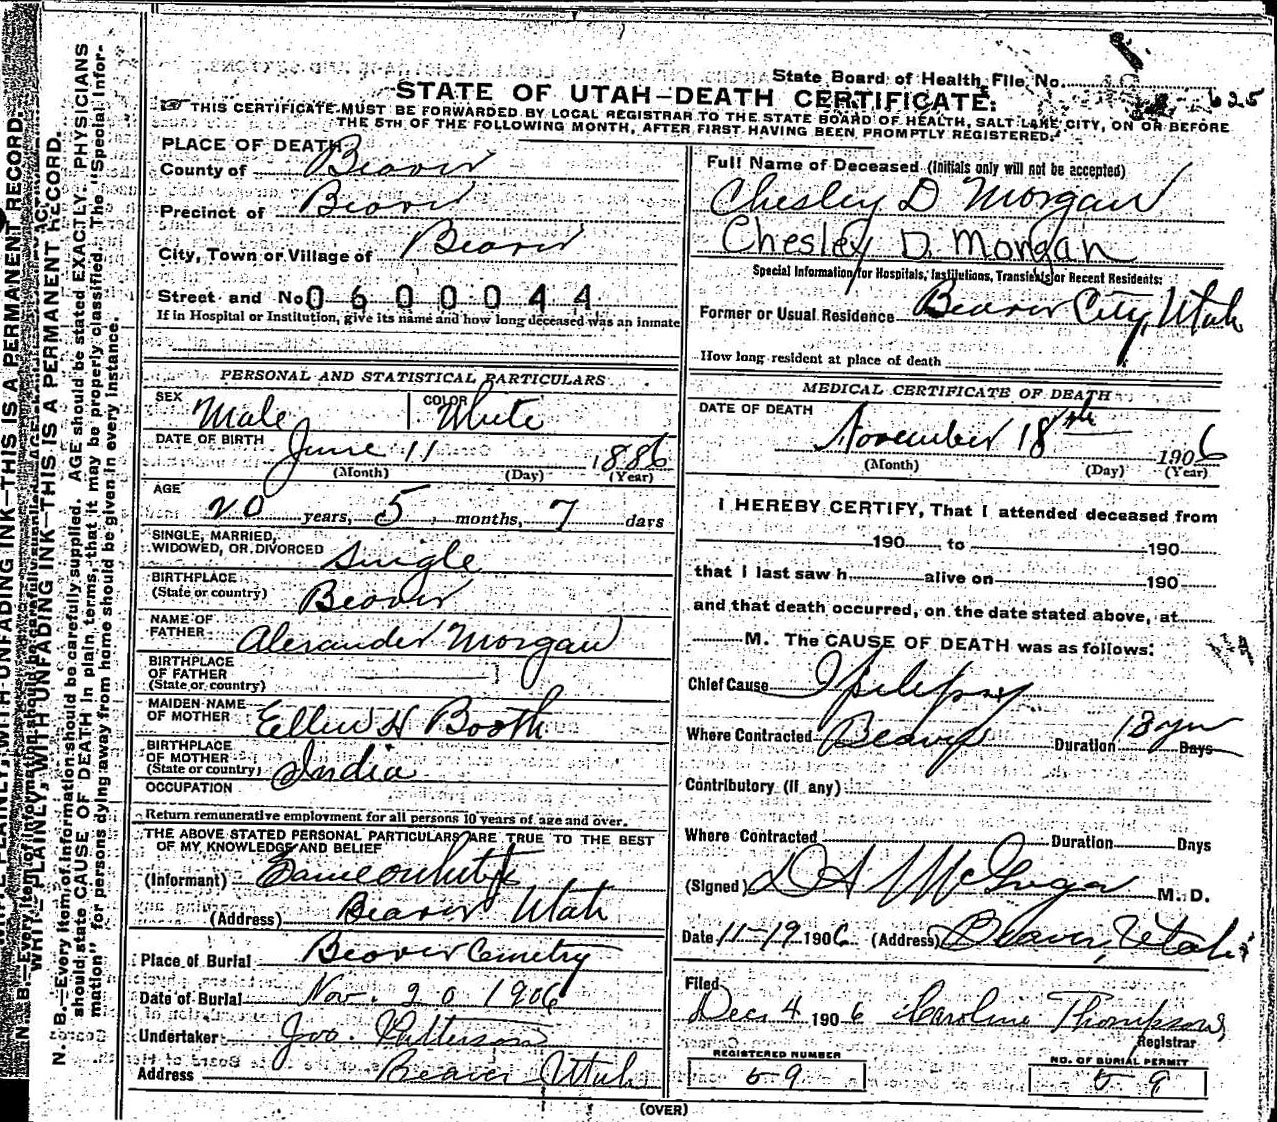 State Board of Health File No.
625
STATE OF UTAH—DEATH CERTIFICATE.
THIS CERTIFICATE MUST BE FORWARDED BY LOCAL REGISTRAR TO THE STATE BOARD OF HEALTH, SALT LAKE CITY, ON OR BEFORE
THE 5TH OF THE FOLLOWING MONTH, AFTER FIRST HAVING BEEN PROMPTLY REGISTERED.
PLACE OF DEATH
County of Beaver
Precinct of Beaver
City, Town or Village of Beaver
Street and No. 0600044
If in Hospital or Institution, give its name and how long deceased was an inmate
PERSONAL AND STATISTICAL PARTICULARS
SEX Male COLOR White
DATE OF BIRTH June 11 1886
(Month) (Day) (Year)
AGE 20 years, 5 months, 7 days
SINGLE, MARRIED,
WIDOWED, OR DIVORCED Single
BIRTHPLACE
(State or country) Beaver
NAME OF
FATHER Alexander Morgan
BIRTHPLACE
OF FATHER
(State or country)
MAIDEN NAME
OF MOTHER Ellen H Booth
BIRTHPLACE
OF MOTHER
(State or country) India
OCCUPATION
Return remunerative employment for all persons 10 years of age and over.
THE ABOVE STATED PERSONAL PARTICULARS ARE TRUE TO THE BEST
OF MY KNOWLEDGE AND BELIEF
(Informant)
(Address) Beaver Utah
Place of Burial Beaver Cemetry
Date of Burial Nov. 20 1906
Undertaker Jno. Patterson
Address Beaver Utah
Full Name of Deceased (Initials only will not be accepted)
Chesley D Morgan
Chesley D. Morgan
Special Information for Hospitals, Institutions, Transients or Recent Residents:
Former or Usual Residence Beaver City, Utah
How long resident at place of death
MEDICAL CERTIFICATE OF DEATH
DATE OF DEATH
November 18th 1906
(Month) (Day) (Year)
I HEREBY CERTIFY, That I attended deceased from
190 to 190
that I last saw h alive on 190
and that death occurred, on the date stated above, at
M. The CAUSE OF DEATH was as follows:
Chief Cause Epilepsy
Where Contracted Beaver Duration 18 yrs Days
Contributory (if any)
Where Contracted Duration Days
(Signed) D A McGregor M. D.
Date 11-19 1906 (Address) Beaver, Utah
Filed
Dec. 4 1906 Caroline Thompson
Registrar
REGISTERED NUMBER
59
NO. OF BURIAL PERMIT
59
(OVER)
WRITE PLAINLY, WITH UNFADING INK—THIS IS A PERMANENT RECORD.
N. B.—Every item of information should be carefully supplied. AGE should be stated EXACTLY. PHYSICIANS
should state CAUSE OF DEATH in plain terms, that it may be properly classified. The "Special Infor-
mation" for persons dying away from home should be given in every instance.